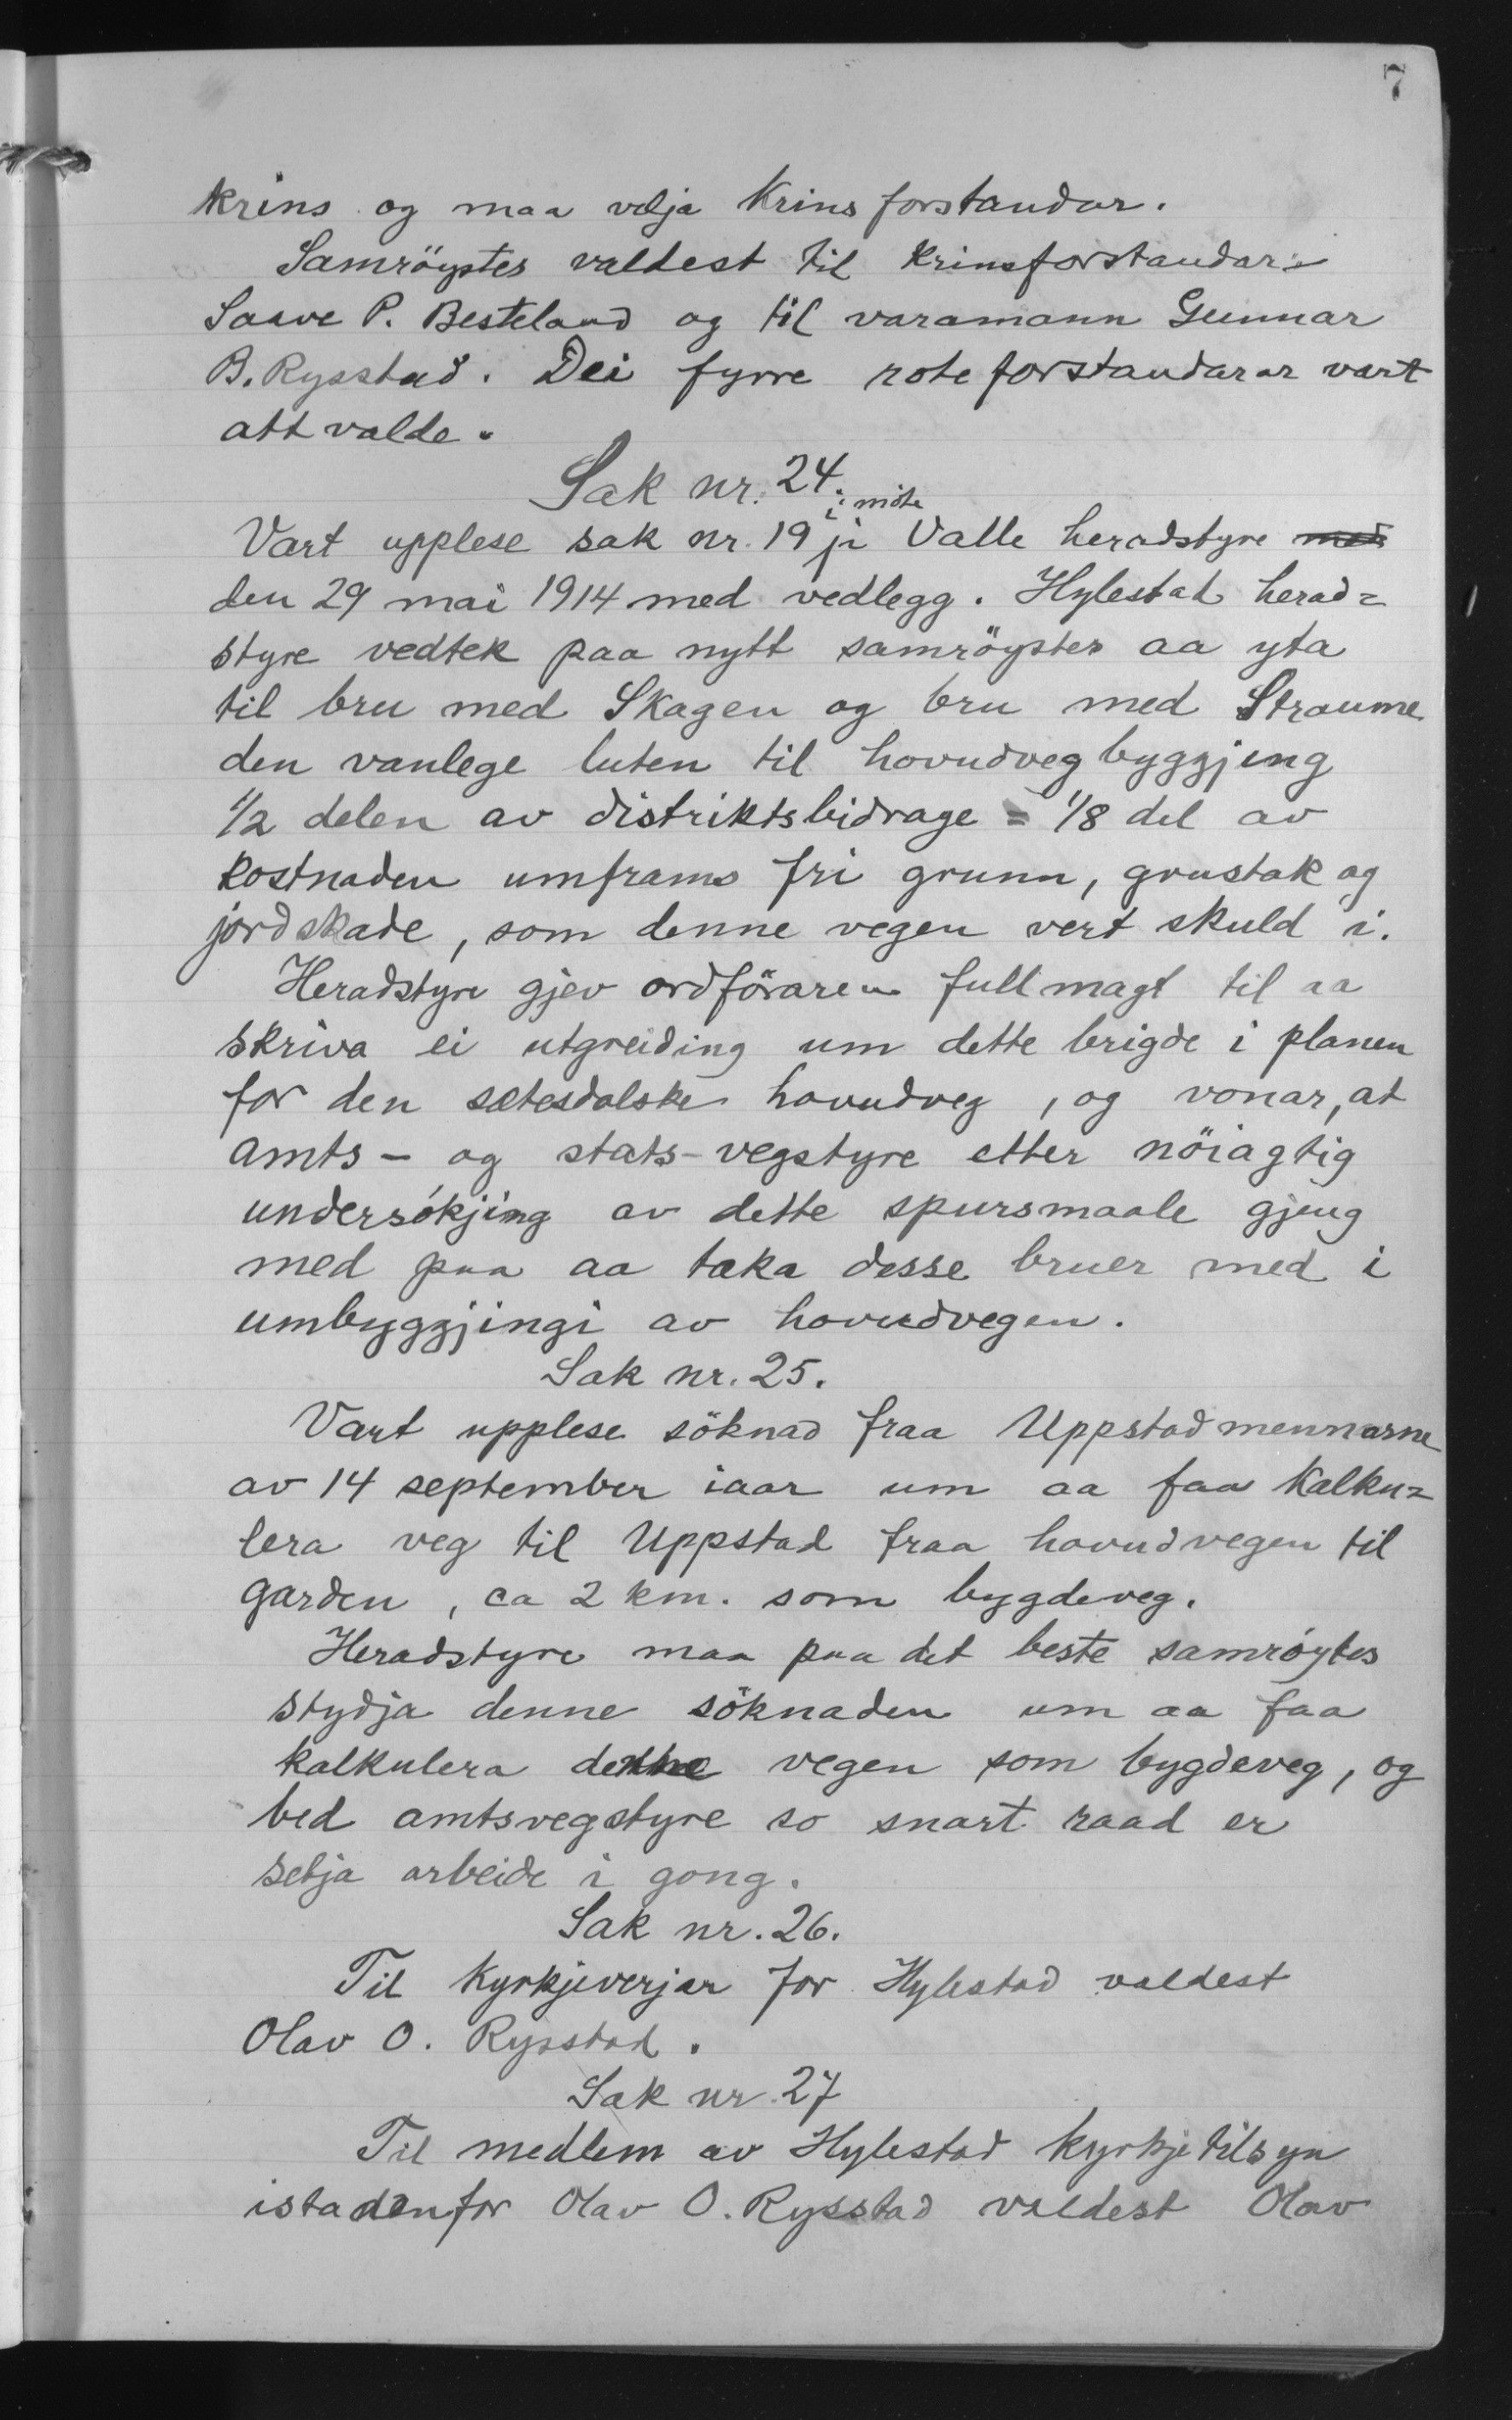 7
krins og maa velja krinsforstandar.
Samröystes valdest til krinsforstandar:
Saave P. Besteland og til varamann Gunnar
B. Rysstad. Dei fyrre roteforstandarar vart
attvalde.
Sak nr. 24.
i möte
Vart upplese sak nr. 19 i Valle heradstyre med
den 29 mai 1914 med vedlegg. Hylestad herad=
styre vedtek paa nytt samröystes aa yta
til bru med Skagen og bru med Straume
den vanlege luten til hovudvegbyggjing
1/2 delen av distriktsbidrage = 1/8 del av
kostnaden umframs fri grunn, grustak og
jordskade, som denne vegen vert skuld i.
Heradstyre gjev ordföraren fullmagt til aa
skriva ei utgreiding um dette brigde i planen
for den sætesdalske hovudveg, og vonar, at
amts- og stats-vegstyre etter nöiagtig
undersókjing av dette spursmaale gjeng
med paa aa taka desse bruer med i
umbyggjingi av hovudvegen.
Sak nr. 25.
Vart upplese söknad fraa Uppstadmennarne
av 14 september iaar um aa faa kalku=
lera veg til Uppstad fraa hovudvegen til
garden, ca 2 km. som bygdeveg.
Heradstyre maa paa det beste samróytes
stydja denne söknaden um aa faa
kalkulera denne vegen som bygdeveg, og
bed amtsvegstyre so snart raad er
setja arbeide i gong.
Sak nr. 26.
Til kyrkjeverjar for Hylestad valdest
Olav O. Rysstad.
Sak nr. 27
Til medlem av Hylestad kyrkjetilsyn
istadenfor Olav O. Rysstad valdest Olav